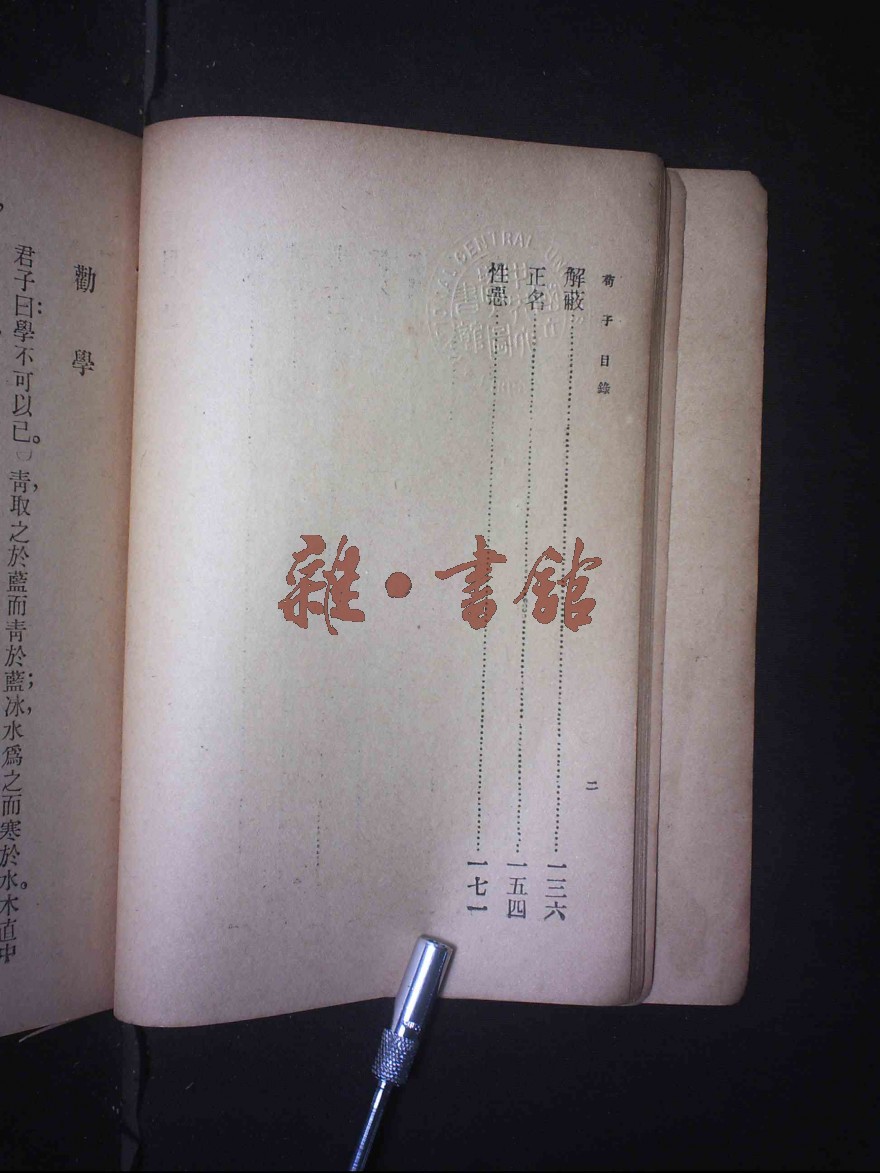 荀子目錄
二
解蔽……一三六
正名……一五四
性惡……一七一
勸學
君子曰：學不可以已。青，取之於藍而青於藍；冰，水爲之而寒於水。木直中
雜·書館